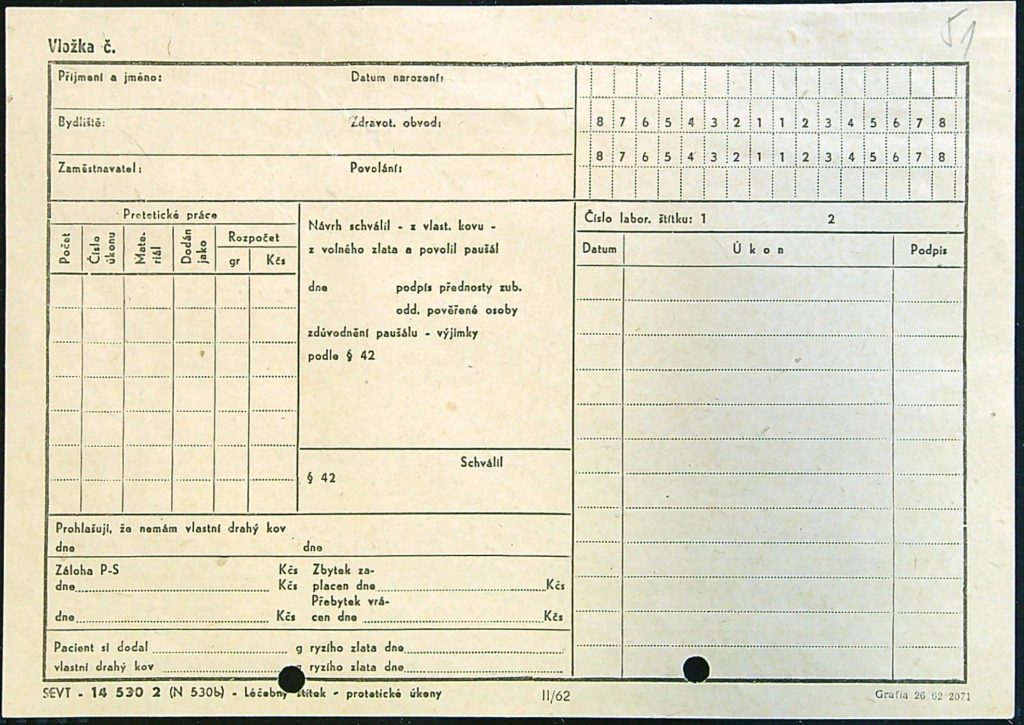 51
Vložka č.
Příjmení a jméno: Datum narození:
Bydliště: Zdravot. obvod:
Zaměstnavatel: Povolání:
8 7 6 5 4 3 2 1 1 2 3 4 5 6 7 8
8 7 6 5 4 3 2 1 1 2 3 4 5 6 7 8
Protetické práce
Počet
Číslo úkonu
Mate-
riál
Dodán jako
Rozpočet
gr Kčs
Návrh schválil - z vlast. kovu -
z volného zlata a povolil paušál
dne podpis přednosty zub.
odd. pověřené osoby
zdůvodnění paušálu - výjimky
podle § 42
Schválil
§ 42
Číslo labor. štítku: 1 2
Datum Úkon Podpis
Prohlašuji, že nemám vlastní drahý kov
dne dne
Záloha P-S Kčs Zbytek za-
dne Kčs placen dne Kčs
Přebytek vrá-
dne Kčs cen dne Kčs
Pacient si dodal g ryzího zlata dne
vlastní drahý kov g ryzího zlata dne
SEVT - 14 530 2 (N 530b) - Léčebný štítek - protetické úkony II/62 Grafia 26 62 2071